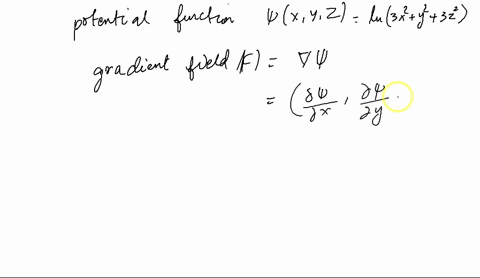 potential function Ψ(x,y,z) = ln(3x²+y²+3z²)
gradient field (F) = ∇Ψ
= (∂Ψ/∂x, ∂Ψ/∂y